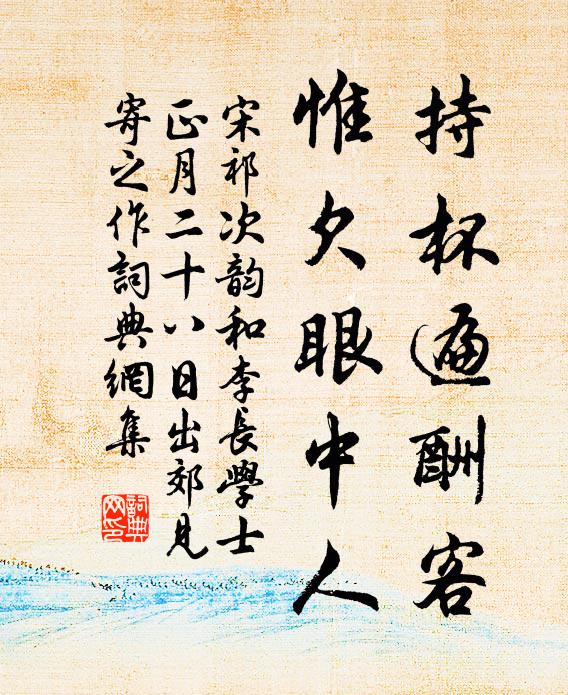 持杯遍酬客
惟欠眼中人
宋祁次韵和李长學士
正月二十八日出郊見
寄之作詞典網集
詞典